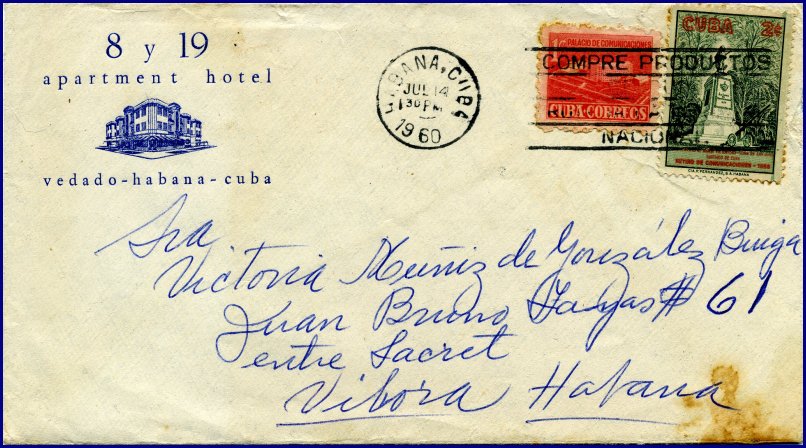 8 y 19
apartment hotel
vedado-habana-cuba
HABANA, CUBA
JUL 14
1 30 PM
1960
1c PALACIO DE COMUNICACIONES
CUBA-CORREOS
CUBA 2c
COMPRE PRODUCTOS
NACIO
RETIRO DE COMUNICACIONES - 1958
CIA. P. FERNANDEZ, S.A. HABANA
Sra
Victoria Muñiz de González
Juan Bruno Zayas # 61
entre Lacret
Vibora Habana